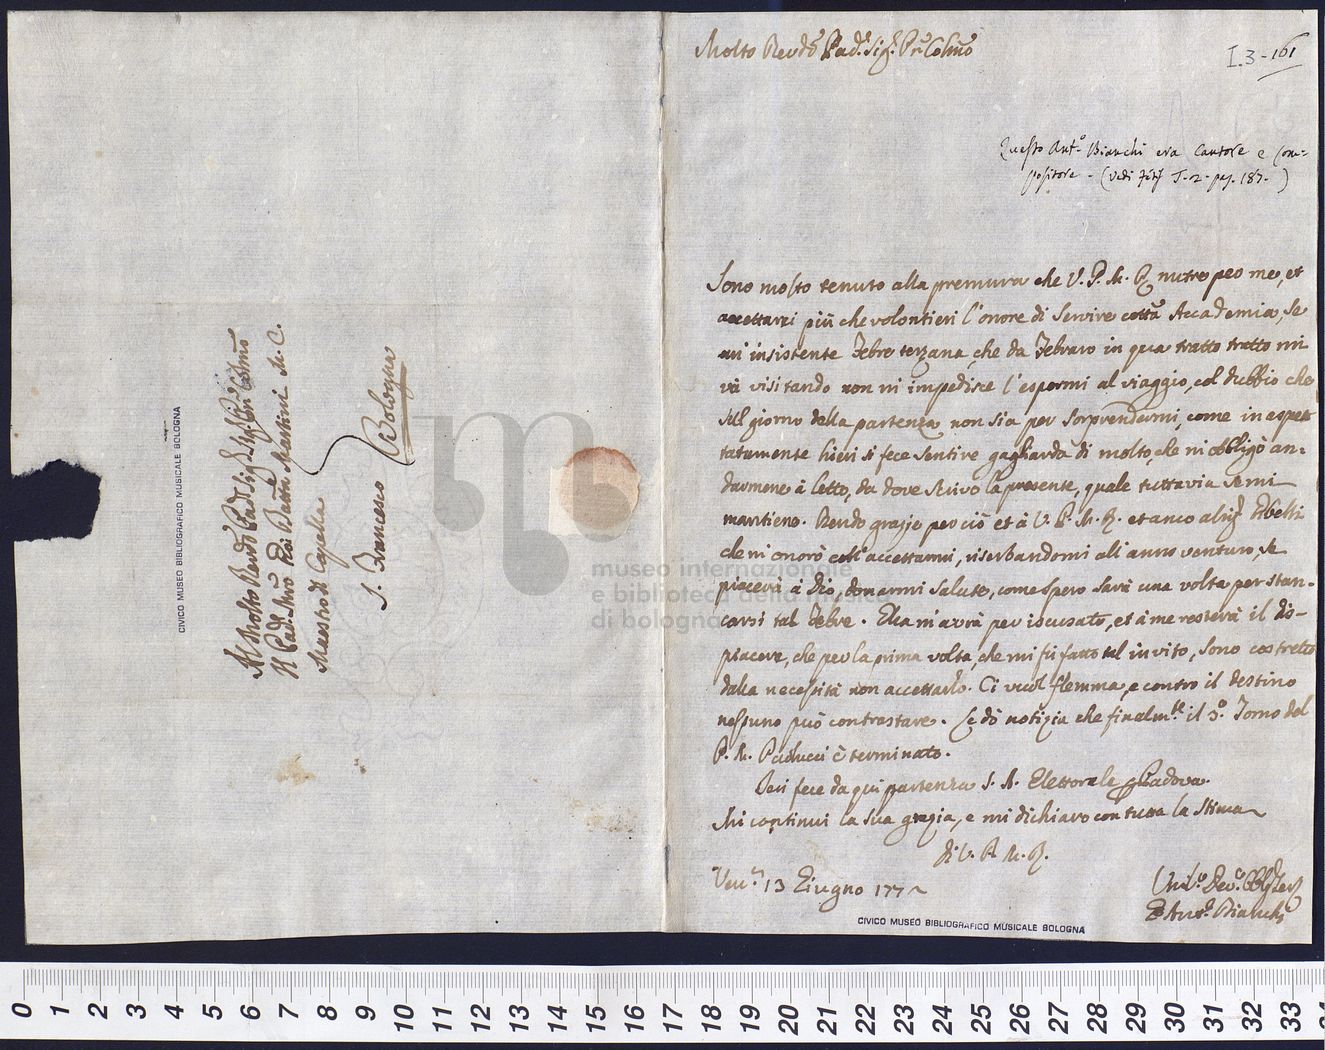 Molto Revdo Pad. Sig. Prn Colmo
I.3-161
Questo Anto Bianchi era Cantore e Com-
positore - (Vedi Fétis T. 2 - pag. 187. )
Sono molto tenuto alla premura che V. P. M. R. nutre per me, et
accettarei più che volontieri l'onore di Servire cotta Accademia, se
un insistente Febre terzana, che da Febraro in qua tratto tratto mi
và visitando non mi impedisce l'espormi al viaggio, col dubbio che
sul giorno della partenza non sia per sorprendermi, come inaspet
tatamente hieri si fece sentire gagliarda di molto, che mi obbligò an-
darmene à letto, da dove scrivo la presente, quale tuttavia se mi
mantiene. Rendo grazie perciò et à V. P. M. R. et anco al sigr
che mi onorò coll'accettarmi, riserbandomi all'anno venturo, se
piacerà à Dio, donarmi salute, come spero sarà una volta per stan-
carsi tal Febre. Ella m'avrà per iscusato, et à me resterà il dis-
piacere, che per la prima volta, che mi fù fatto tal invito, sono costretto
dalla necessità non accettarlo. Ci vuol flemma, e contro il destino
nessuno può contrastare. Le dò notizia che finalmte il 3o Tomo del
P. M. Paolucci è terminato.
Ieri fece da qui partenza S. A. Elettorale p Padova.
Mi continui la sua grazia, e mi dichiaro con tutta la stima
Di V. P. M. R.
Vena 13 Giugno 177
Umilo Devo Obb Serv
Anto Bianchi
CIVICO MUSEO BIBLIOGRAFICO MUSICALE BOLOGNA
Al Molto Revdo Pad Sig Sig Prn Colmo
Il Padre Mro Gio Batta Martini M. C.
Maestro di Capella
S. Francesco
Bologna
CIVICO MUSEO BIBLIOGRAFICO MUSICALE BOLOGNA
museo internazionale
e biblioteca della musica
di bologna
0 1 2 3 4 5 6 7 8 9 10 11 12 13 14 15 16 17 18 19 20 21 22 23 24 25 26 27 28 29 30 31 32 33